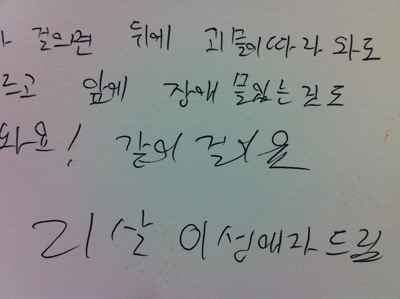 걸으면 뒤에 괴물이따라 와도
르고 앞에 장애 물있는 줄도
와요! 같이 걸어요
리살 이성애자드림